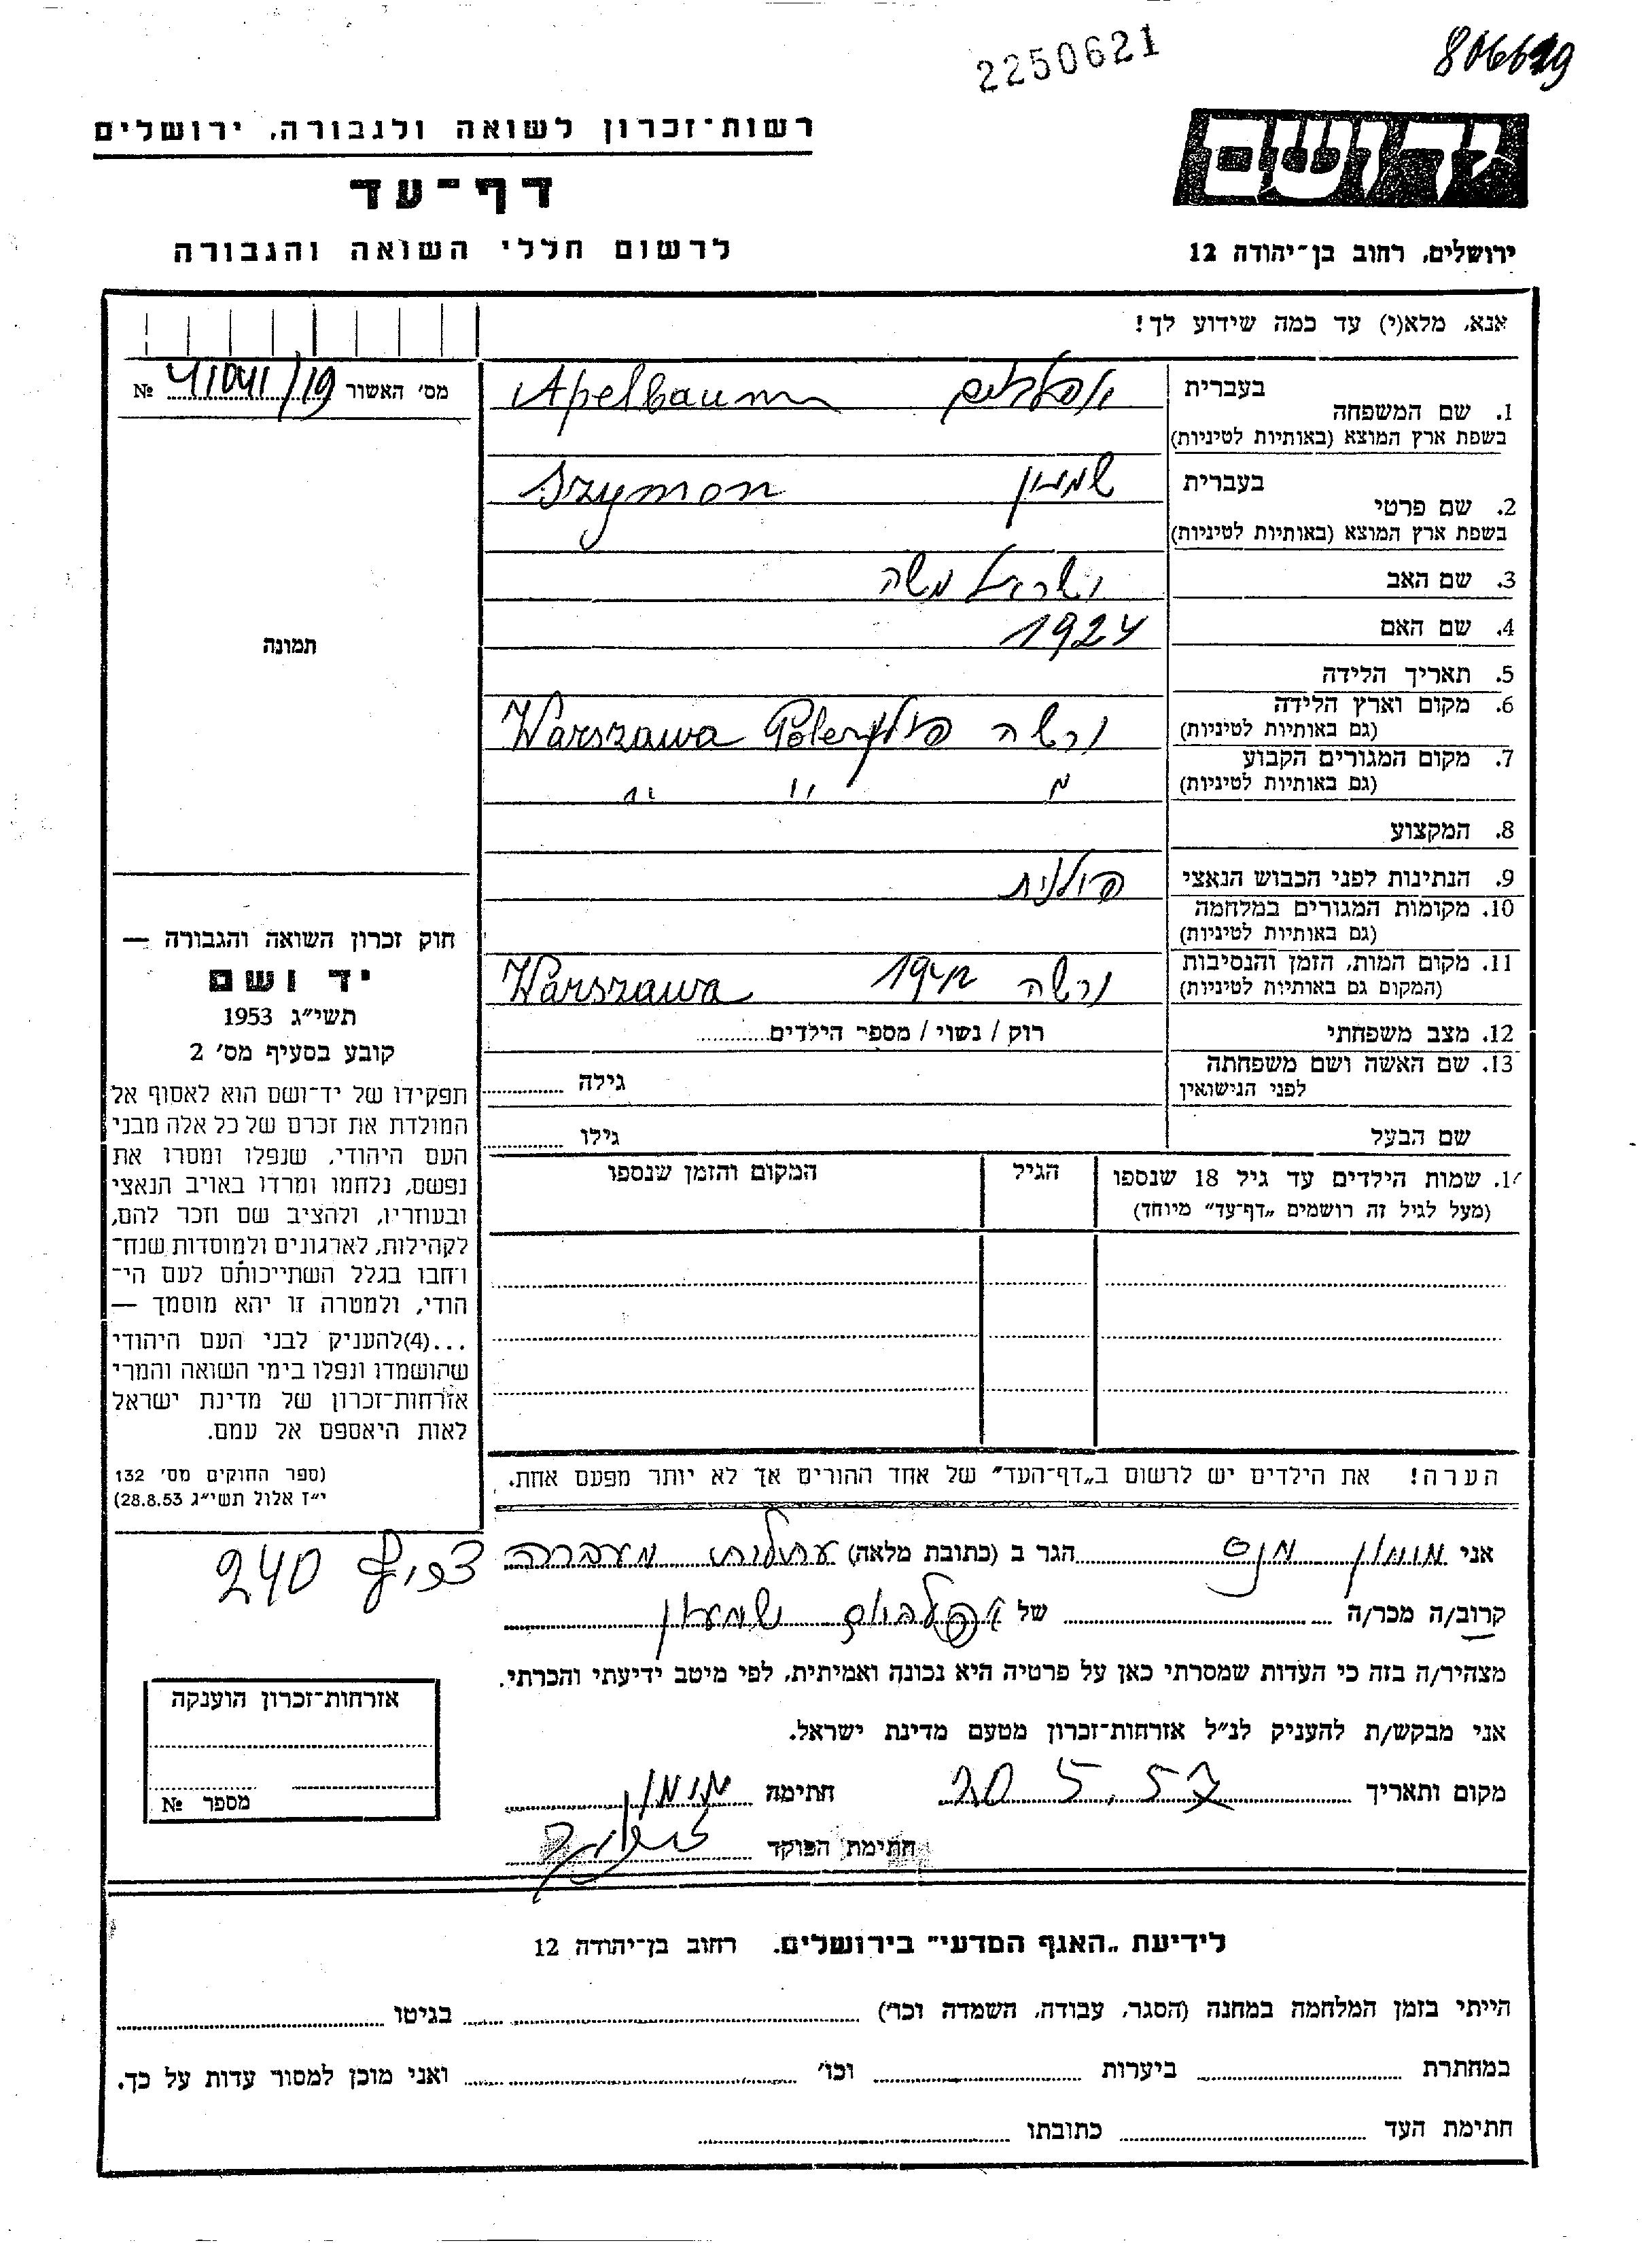 2250621
רשות־זכרון לשואה ולגבורה, ירושלים
דף־עד
לרשום חללי השואה והגבורה
יד ושם
ירושלים, רחוב בן־יהודה 12
אנא, מלא(י) עד כמה שידוע לך!
מס׳ האשור № 41041/19
בעברית
1. שם המשפחה Apelbaum
בשפת ארץ המוצא (באותיות לטיניות)
בעברית
2. שם פרטי שמעון Szymon
בשפת ארץ המוצא (באותיות לטיניות)
3. שם האב ישראל משה
4. שם האם 1924
5. תאריך הלידה
6. מקום וארץ הלידה ורשה פולין Polen Warszawa
(גם באותיות לטיניות)
7. מקום המגורים הקבוע
(גם באותיות לטיניות) " " "
8. המקצוע
9. הנתינות לפני הכבוש הנאצי פולנית
10. מקומות המגורים במלחמה
(גם באותיות לטיניות)
11. מקום המות, הזמן והנסיבות ורשה 1942 Warszawa
(המקום גם באותיות לטיניות)
12. מצב משפחתי רוק / נשוי / מספר הילדים
13. שם האשה ושם משפחתה
לפני הנישואין גילה
שם הבעל גילו
1. שמות הילדים עד גיל 18 שנספו הגיל המקום והזמן שנספו
(מעל לגיל זה רושמים „דף־עד״ מיוחד)
הערה! את הילדים יש לרשום ב„דף־העד״ של אחד ההורים אך לא יותר מפעם אחת.
תמונה
חוק זכרון השואה והגבורה —
יד ושם
תשי״ג 1953
קובע בסעיף מס׳ 2
תפקידו של יד־ושם הוא לאסוף אל
המולדת את זכרם של כל אלה מבני
העם היהודי, שנפלו ומסרו את
נפשם, נלחמו ומרדו באויב הנאצי
ובעוזריו, ולהציב שם וזכר להם,
לקהילות, לארגונים ולמוסדות שנח־
רחבו בגלל השתייכותם לעם הי־
הודי, ולמטרה זו יהא מוסמך —
...(4)להעניק לבני העם היהודי
שהושמדו ונפלו בימי השואה והמרי
אזרחות־זכרון של מדינת ישראל
לאות היאספם אל עמם.
(ספר החוקים מס׳ 132
י״ז אלול תשי״ג 28.8.53)
אני הגר ב (כתובת מלאה) עתלית מעברה צריף 240
קרוב/ה מכר/ה של אפלבוים שמעון
מצהיר/ה בזה כי העדות שמסרתי כאן על פרטיה היא נכונה ואמיתית, לפי מיטב ידיעתי והכרתי.
אני מבקש/ת להעניק לנ״ל אזרחות־זכרון מטעם מדינת ישראל.
מקום ותאריך 20.5.57 חתימה
חתימת הפוקד
אזרחות־זכרון הוענקה
מספר №
לידיעת „האגף המדעי״ בירושלים, רחוב בן־יהודה 12
הייתי בזמן המלחמה במחנה (הסגר, עבודה, השמדה וכר׳) בגיטו
במחתרת ביערות וכו׳ ואני מוכן למסור עדות על כך.
חתימת העד כתובתו